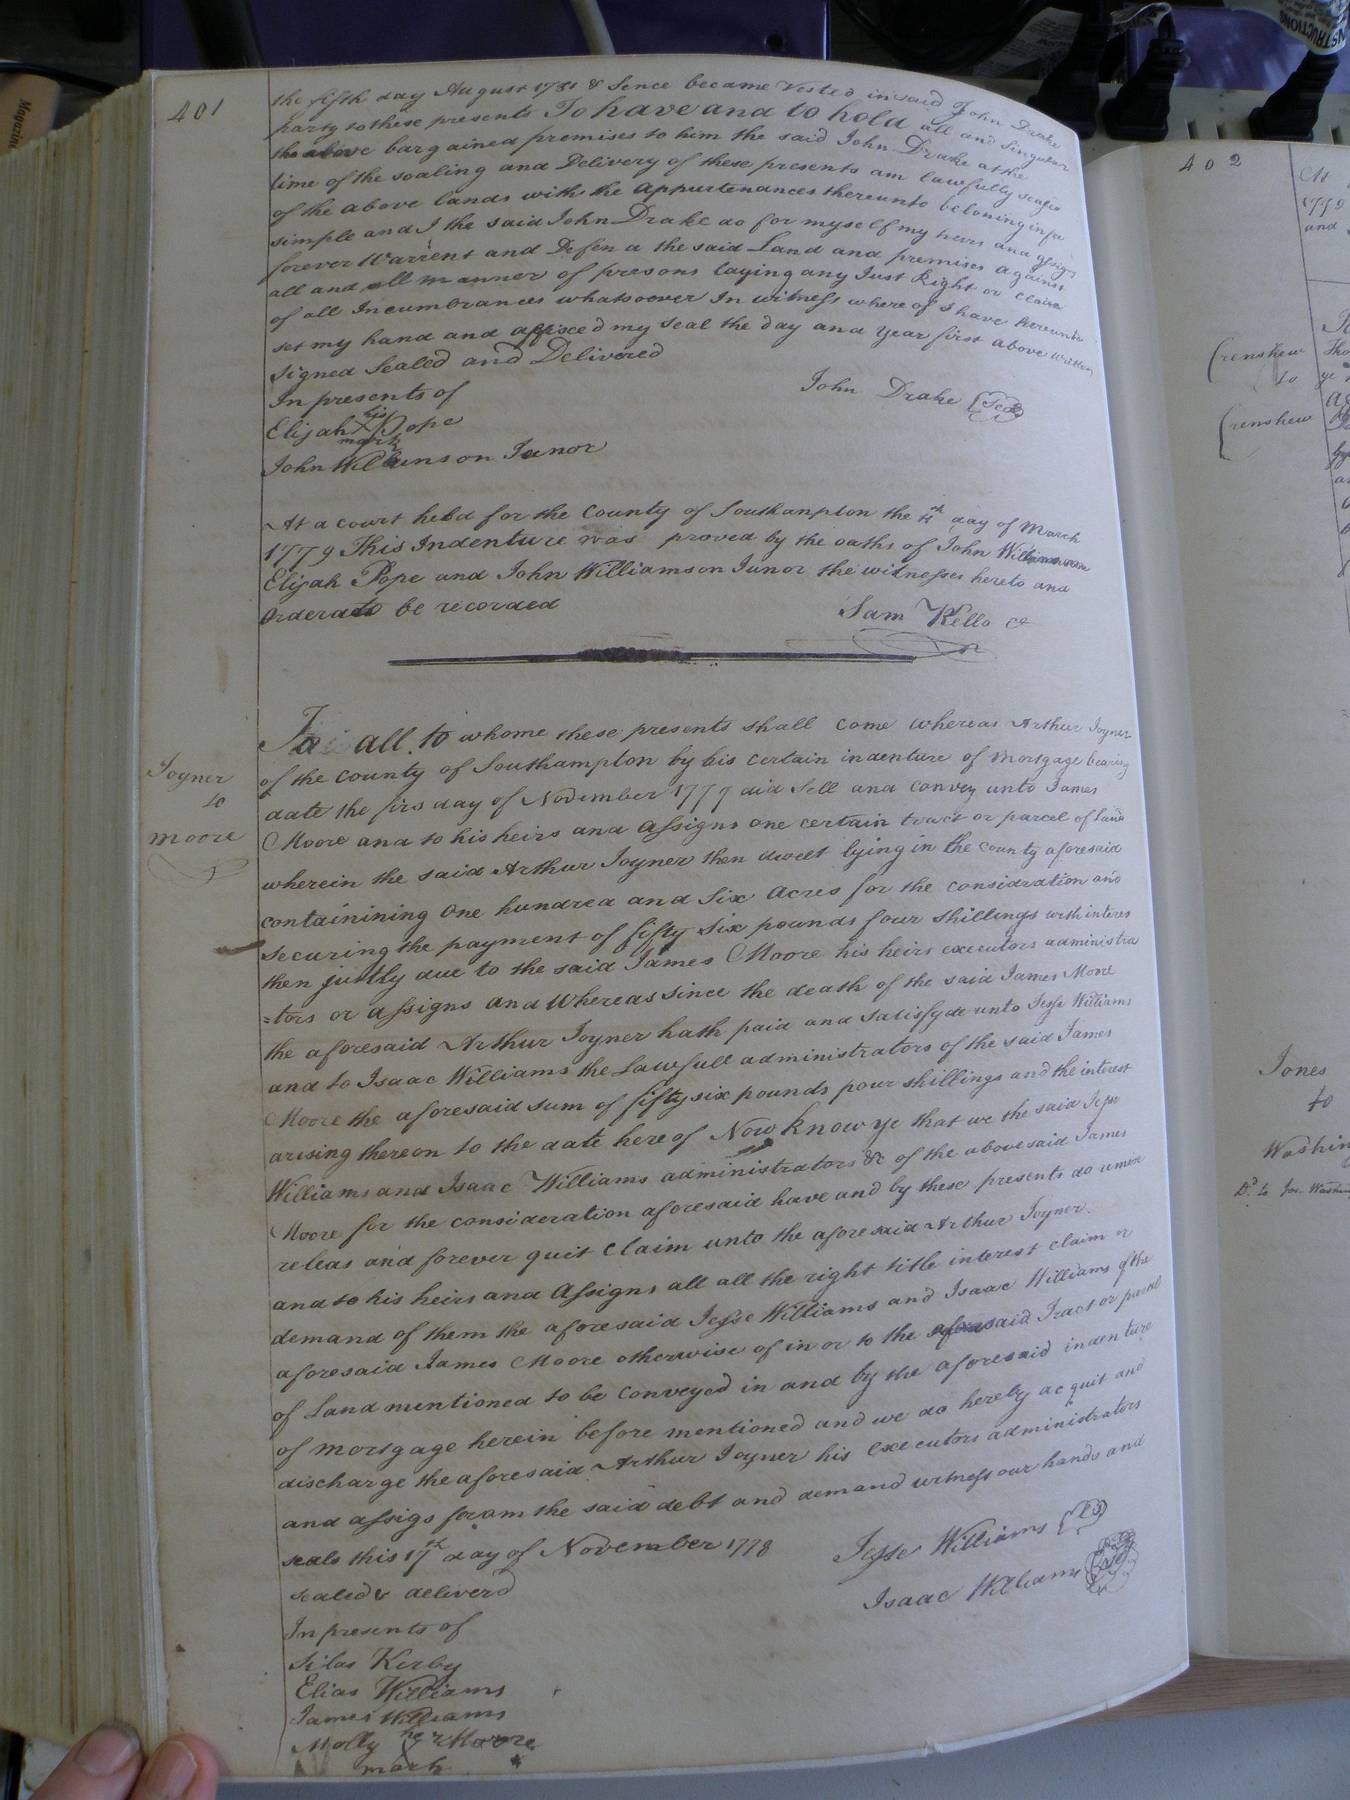 401
the fifth day August 1781 & Sence became Vested in said John Drake
party to these presents To have and to hold all and Singular
the above bargained premises to him the said John Drake at the
time of the sealing and Delivery of these presents am lawfully seized
of the above lands with the appurtenances thereunto beloning in fe
simple and I the said John Drake do for myself my heirs and assigns
forever Warrent and Defend the said Land and premises against
all and all manner of presons laying any Just Right or claim
of all Incumbrances whatsoever In witness where of I have hereunto
set my hand and affixed my seal the day and year first above written
Signed Sealed and Delivered
In presents of
John Drake Seal
his
Elijah X Pope
mark
John Wilkinson Junor
At a court held for the County of Southampton the 11th day of March
1779 This Indenture was proved by the oaths of John Wilkinson
Elijah Pope and John Williamson Junor the witnesses hereto and
Orderad to be recorded
Sam Kello
Joyner
to
moore
To all to whome these presents shall come whereas Arthur Joyner
of the county of Southampton by his certain indenture of mortgage bearing
date the firs day of November 1777 did Sell and convey unto James
Moore and to his heirs and assigns one certain tract or parcel of land
wherein the said Arthur Joyner then dwelt lying in the county aforesaid
containining One hundred and Six acres for the considration and
securing the payment of fifty Six pounds four Shillings with interes
then justly due to the said James Moore his heirs executors administra
=tors or assigns and Whereas since the death of the said James Moore
the aforesaid Arthur Joyner hath paid and satisfyde unto Jesse Williams
and to Isaac Williams the Lawfull administrators of the said James
Moore the aforesaid sum of fifty six pounds pour shillings and the interest
arising thereon to the date here of Now know ye that we the said Jesse
Williams and Isaac Williams administrators &c of the above said James
Moore for the consideration aforesaid have and by these presents do
releas and forever quit claim unto the aforesaid Arthur Joyner
and to his heirs and assigns all all the right title interest claim or
demand of them the aforesaid Jesse Williams and Isaac Williams of the
aforesaid James Moore otherwise of in or to the aforesaid Tract or parcel
of Land mentioned to be conveyed in and by the aforesaid indenture
of mortgage herein before mentioned and we do hereby acquit and
discharge the aforesaid Arthur Joyner his executors administrators
and assigs from the said debt and demand witness our hands and
seals this 17th day of November 1778
Jesse Williams
sealed & deliverd
Isaac Williams
In presents of
Silas Kirby
Elias Williams
James Williams
her
Molly X Moore
mark
402
1779
and
Crenshew
to
Crenshew
Jones
to
Washin
Dd to Jos. Washin
Magazine
INSTRUCTIONS